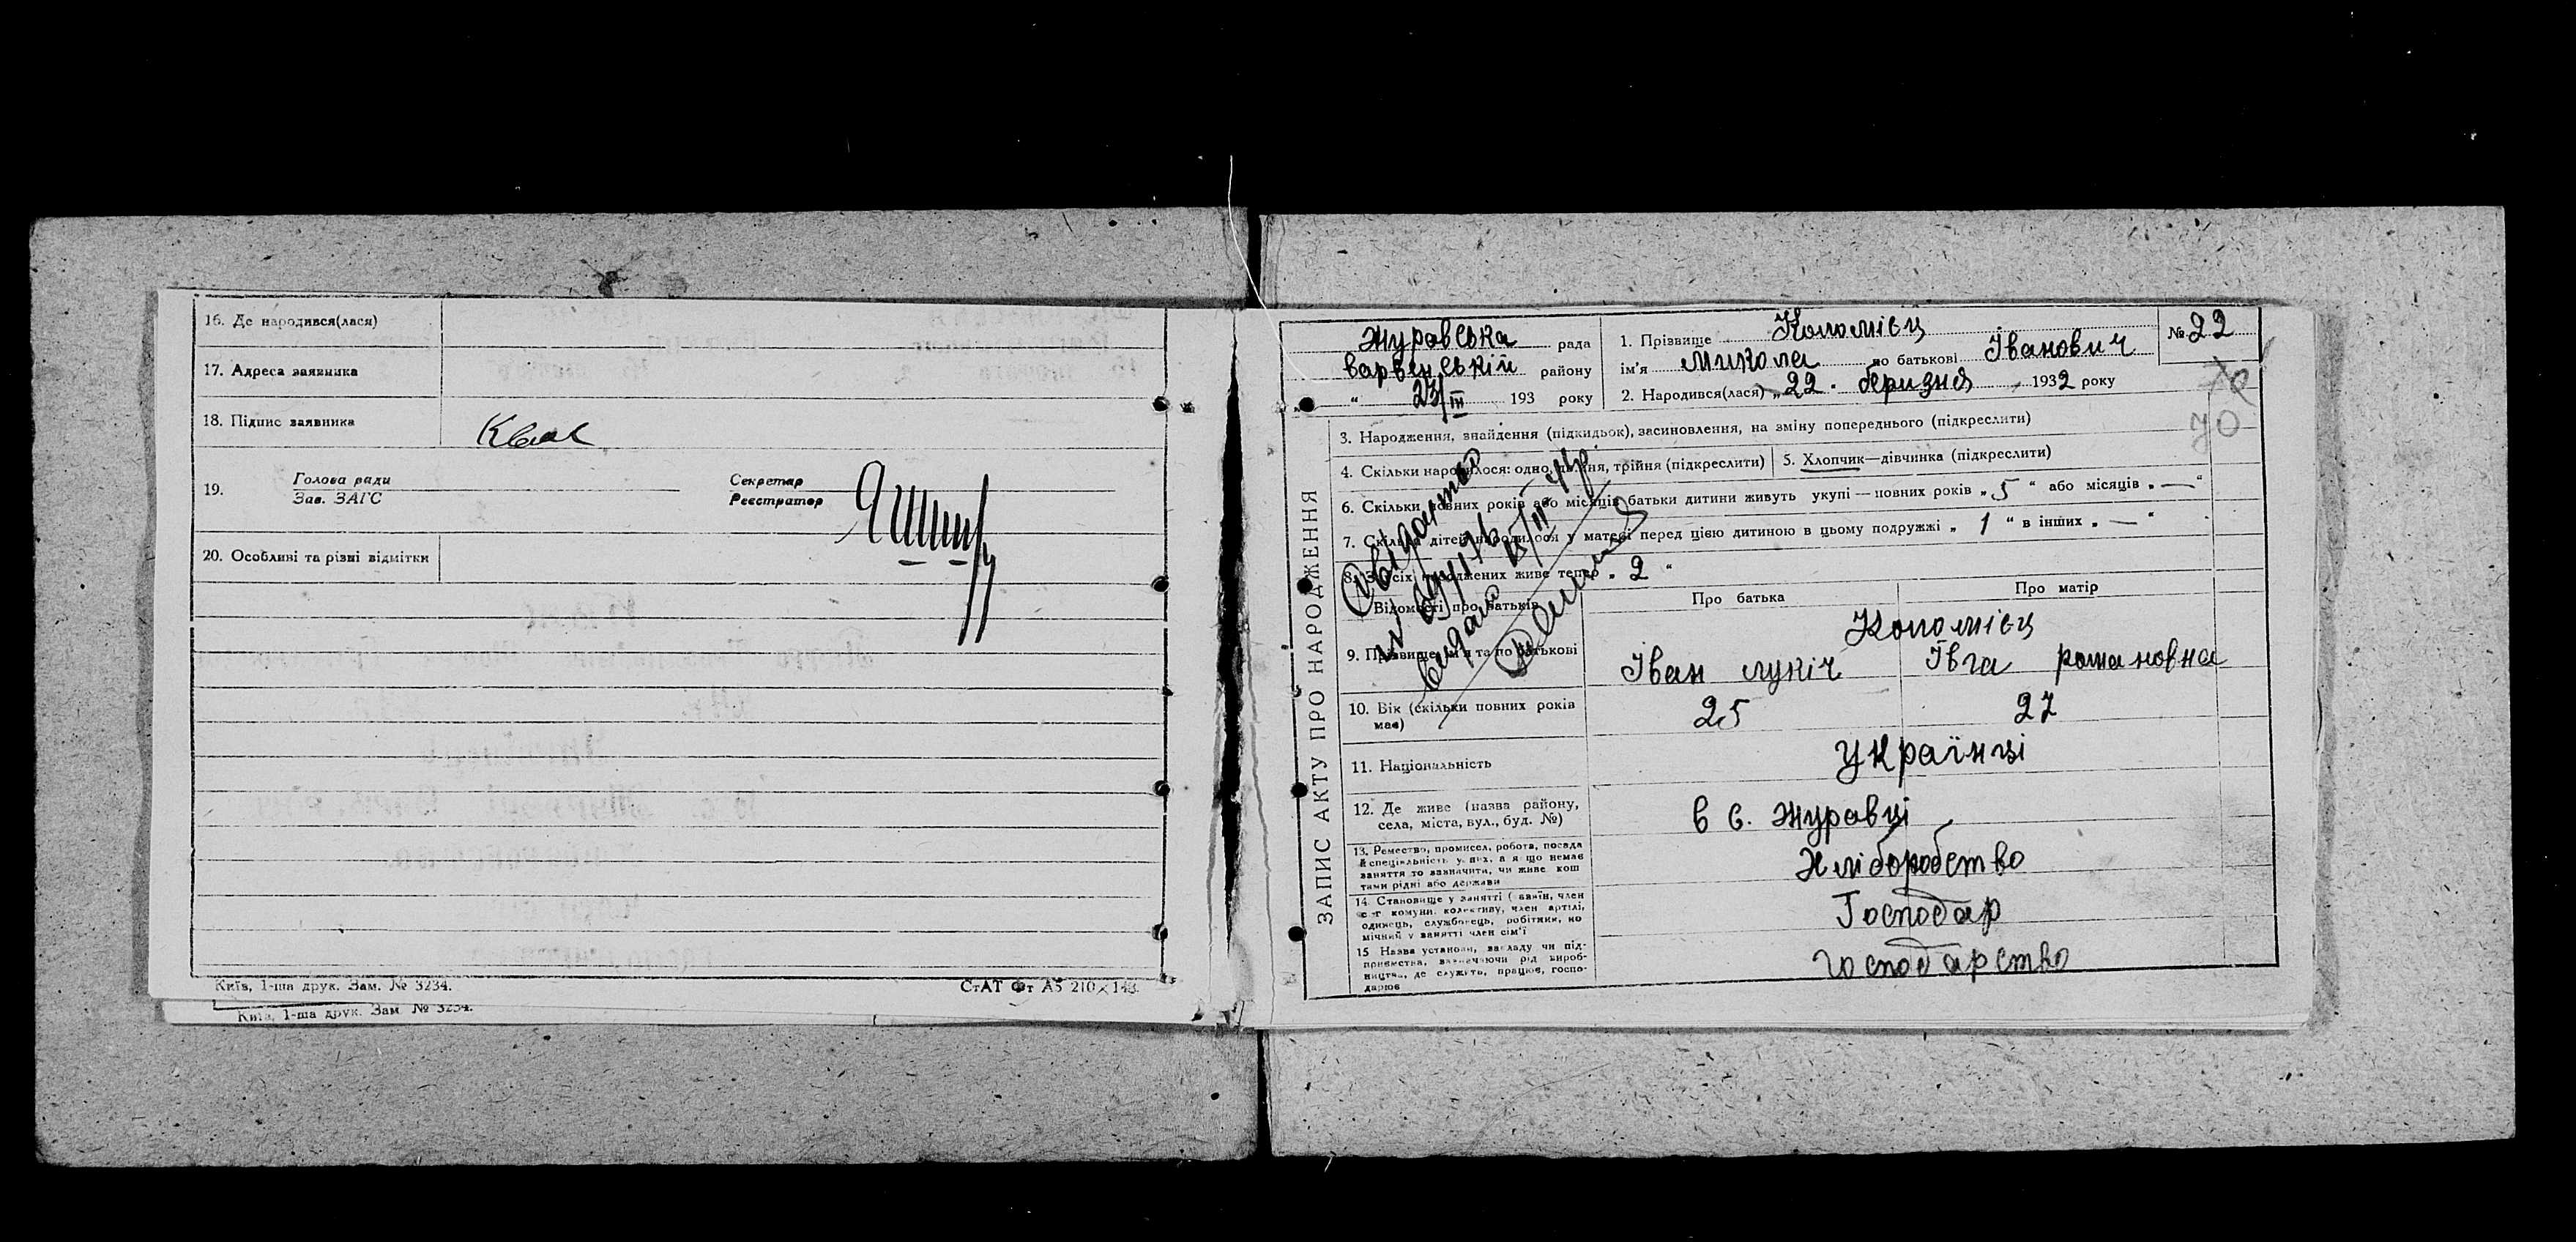 16. Де народився(лася)
17. Адреса заявника
18. Підпис заявника
19. Голова ради
Зав. ЗАГС
Секретар
Реєстратор
20. Особливі та різні відмітки
Київ, 1-ша друк. Зам. № 3234.
СтАТ Фт А5 210×148.
Київ, 1-ша друк. Зам. № 3234.
ЗАПИС АКТУ ПРО НАРОДЖЕННЯ
Журавська рада
Варвенській району
" 23/III 193 року
1. Прізвище Коломієц
ім'я Микола по батькові Іванович
2. Народився(лася) „22. беризня 1932 року
№ 22
70
70
3. Народження, знайдення (підкидьок), засиновлення, на зміну попереднього (підкреслити)
4. Скільки народилося: одно, двійня, трійня (підкреслити)
5. Хлопчик—дівчинка (підкреслити)
6. Скільки повних років або місяців батьки дитини живуть укупі — повних років „ 5 " або місяців „ — "
7. Скільки дітей народилося у матері перед цією дитиною в цьому подружжі „ 1 " в інших „ — "
8. З усіх народжених живе тепер „ 2 "
Відомості про батьків
Про батька
Про матір
9. Прізвище, ім'я та по батькові
Коломієц
Іван лукіч
Івга романовна
10. Вік (скільки повних років має)
25
27
11. Національність
Українці
12. Де живе (назва району,
села, міста, вул., буд. №)
в с. Журавці
13. Ремество, промисел, робота, посада
й спеціяльність у них, а якщо немає
заняття то зазначити, чи живе кош
тами рідні або держави
Хліборобство
14. Становище у занятті (
с-г комуни, колективу, член артілі,
одинець, службовець, робітник, по
мічний у занятті член сім'ї
Господар
15 Назва установи, закладу чи під-
приємства, зазначаючи рід вироб-
ництва, де служить, працює, госпо-
дарює
господарство